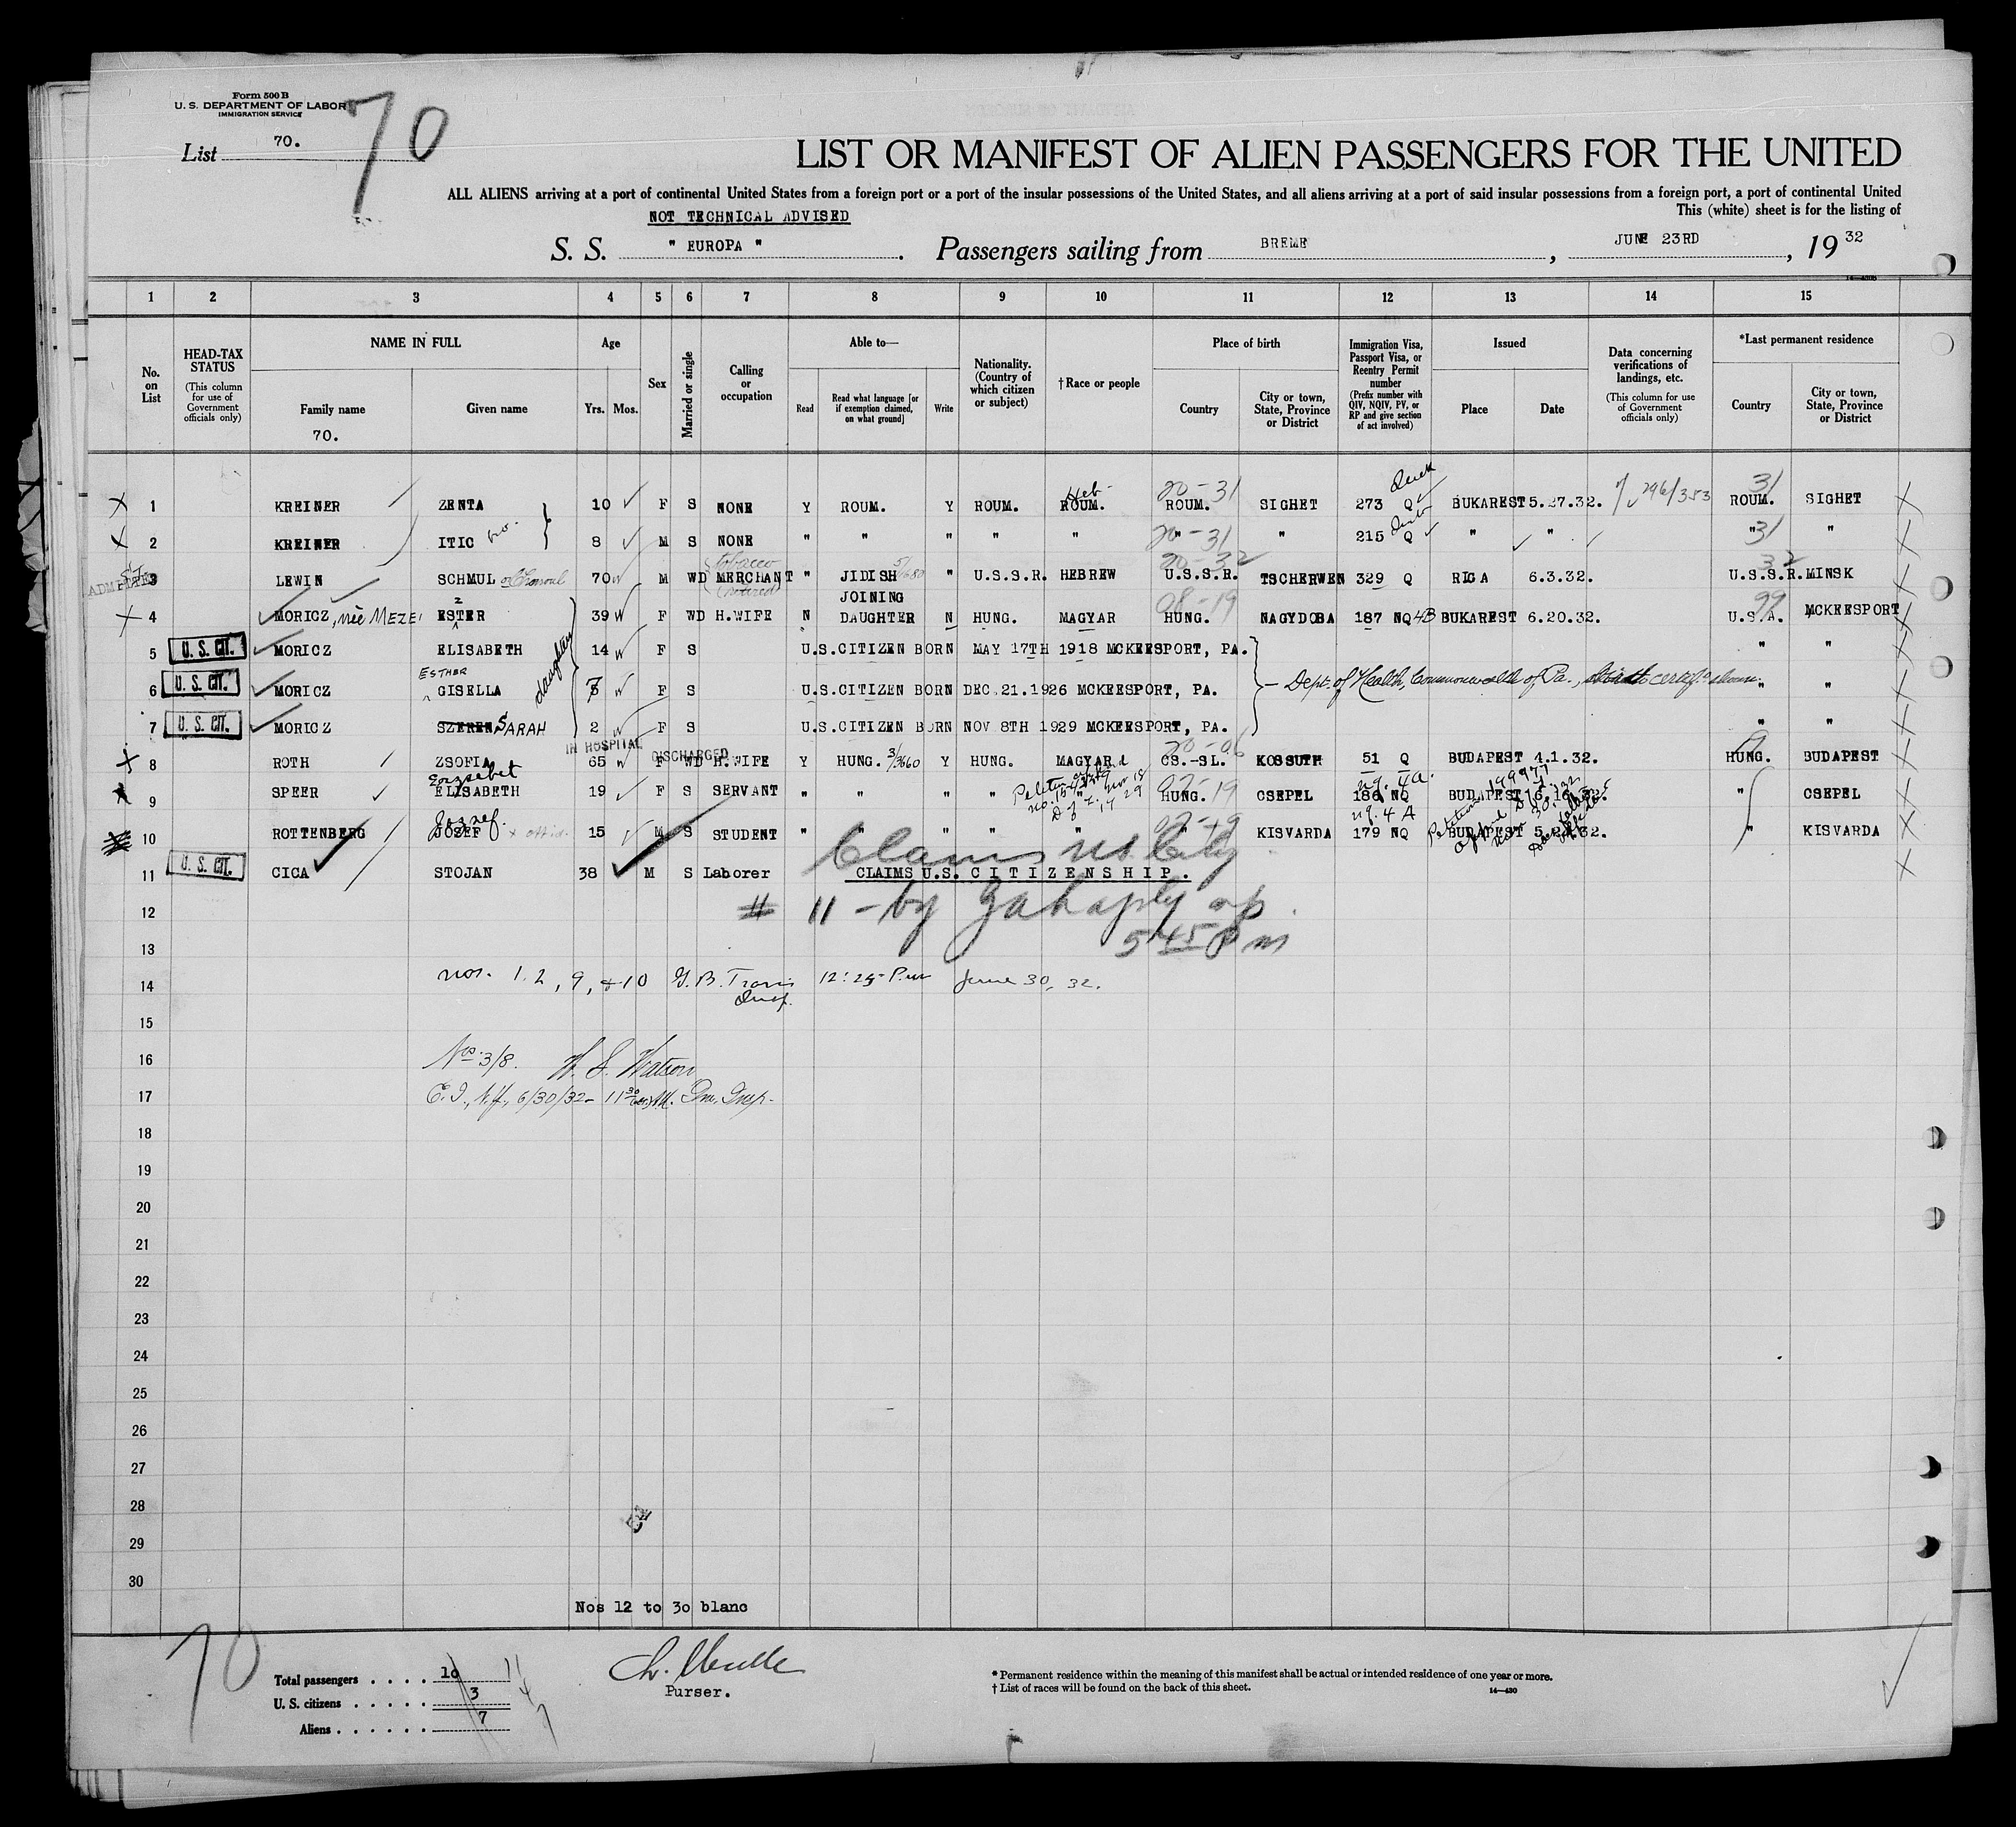 Form 500 B
U. S. DEPARTMENT OF LABOR
IMMIGRATION SERVICE
List 70.
70
LIST OR MANIFEST OF ALIEN PASSENGERS FOR THE UNITED
ALL ALIENS arriving at a port of continental United States from a foreign port or a port of the insular possessions of the United States, and all aliens arriving at a port of said insular possessions from a foreign port, a port of continental United
This (white) sheet is for the listing of
NOT TECHNICAL ADVISED
S. S. " EUROPA " . Passengers sailing from BREME , JUNE 23RD , 19 32
1 2 3 4 5 6 7 8 9 10 11 12 13 14 15
No. on List
HEAD-TAX STATUS (This column for use of Government officials only)
NAME IN FULL Family name Given name
70.
Age Yrs. Mos.
Sex
Married or single
Calling or occupation
Able to— Read Read what language [or if exemption claimed, on what ground] Write
Nationality. (Country of which citizen or subject)
†Race or people
Place of birth Country City or town, State, Province or District
Immigration Visa, Passport Visa, or Reentry Permit number (Prefix number with QIV, NQIV, PV, or RP and give section of act involved)
Issued Place Date
Data concerning verifications of landings, etc. (This column for use of Government officials only)
*Last permanent residence Country City or town, State, Province or District
Heb. 20-31 31
1 KREINER ZENTA 10 F S NONE Y ROUM. Y ROUM. ROUM. ROUM. SIGHET 273 Q BUKAREST 5.27.32. 296/353 ROUM. SIGHET
20-31 31
2 KREINER ITIC 8 M S NONE " " " " " " " 215 Q " " " "
tobacco 20-32 32
ADMITTED
3 LEWIN SCHMUL 70 M WD MERCHANT " JIDISH " U.S.S.R. HEBREW U.S.S.R. TSCHERWEN 329 Q RIGA 6.3.32. U.S.S.R. MINSK
(retired) JOINING 08-19 99
4 MORICZ, née MEZEI ESTER 39 F WD H.WIFE N DAUGHTER N HUNG. MAGYAR HUNG. NAGYDOBA 187 NQ 4B BUKAREST 6.20.32. U.S.A. MCKEESPORT
daughters
5 U. S. CIT. MORICZ ELISABETH 14 F S U.S.CITIZEN BORN MAY 17TH 1918 MCKEESPORT, PA. " "
ESTHER
6 U. S. CIT. MORICZ GISELLA F S U.S.CITIZEN BORN DEC.21.1926 MCKEESPORT, PA. Dept. of Health, Commonwealth of Pa., certif. shown. " "
7 U. S. CIT. MORICZ SZEREN SARAH 2 F S U.S.CITIZEN BORN NOV 8TH 1929 MCKEESPORT, PA. " "
IN HOSPITAL DISCHARGED 20-06
8 ROTH ZSOFIA 65 F WD H.WIFE Y HUNG. 3/3660 Y HUNG. MAGYAR CS.-SL. KOSSUTH 51 Q BUDAPEST 4.1.32. HUNG. BUDAPEST
Erzsebet
9 SPEER ELISABETH 19 F S SERVANT " " " " " HUNG. CSEPEL 186 NQ BUDAPEST " CSEPEL
Jozsef nq. 4 A
10 ROTTENBERG JOZEF 15 M S STUDENT " " " " " " KISVARDA 179 NQ BUDAPEST " KISVARDA
Claims US City
11 U. S. CIT. CICA STOJAN 38 M S Laborer CLAIMS U.S. CITIZENSHIP.
12 # 11 - by
13 5 45 P m
14 nos. 1, 2, 9, + 10 G. B. Travis Insp. 12:25 P.m June 30, 32.
15
16 Nos 3/8. W. S. Watson
17 E.I., N.Y., 6/30/32- 11 30 A.M. Im. Insp.
18
19
20
21
22
23
24
25
26
27
28
29
30
Nos 12 to 30 blanc
70
Total passengers . . . . 10 11
U. S. citizens . . . . . 3 4
Aliens . . . . . . 7 7
Purser.
* Permanent residence within the meaning of this manifest shall be actual or intended residence of one year or more.
† List of races will be found on the back of this sheet.
14—430